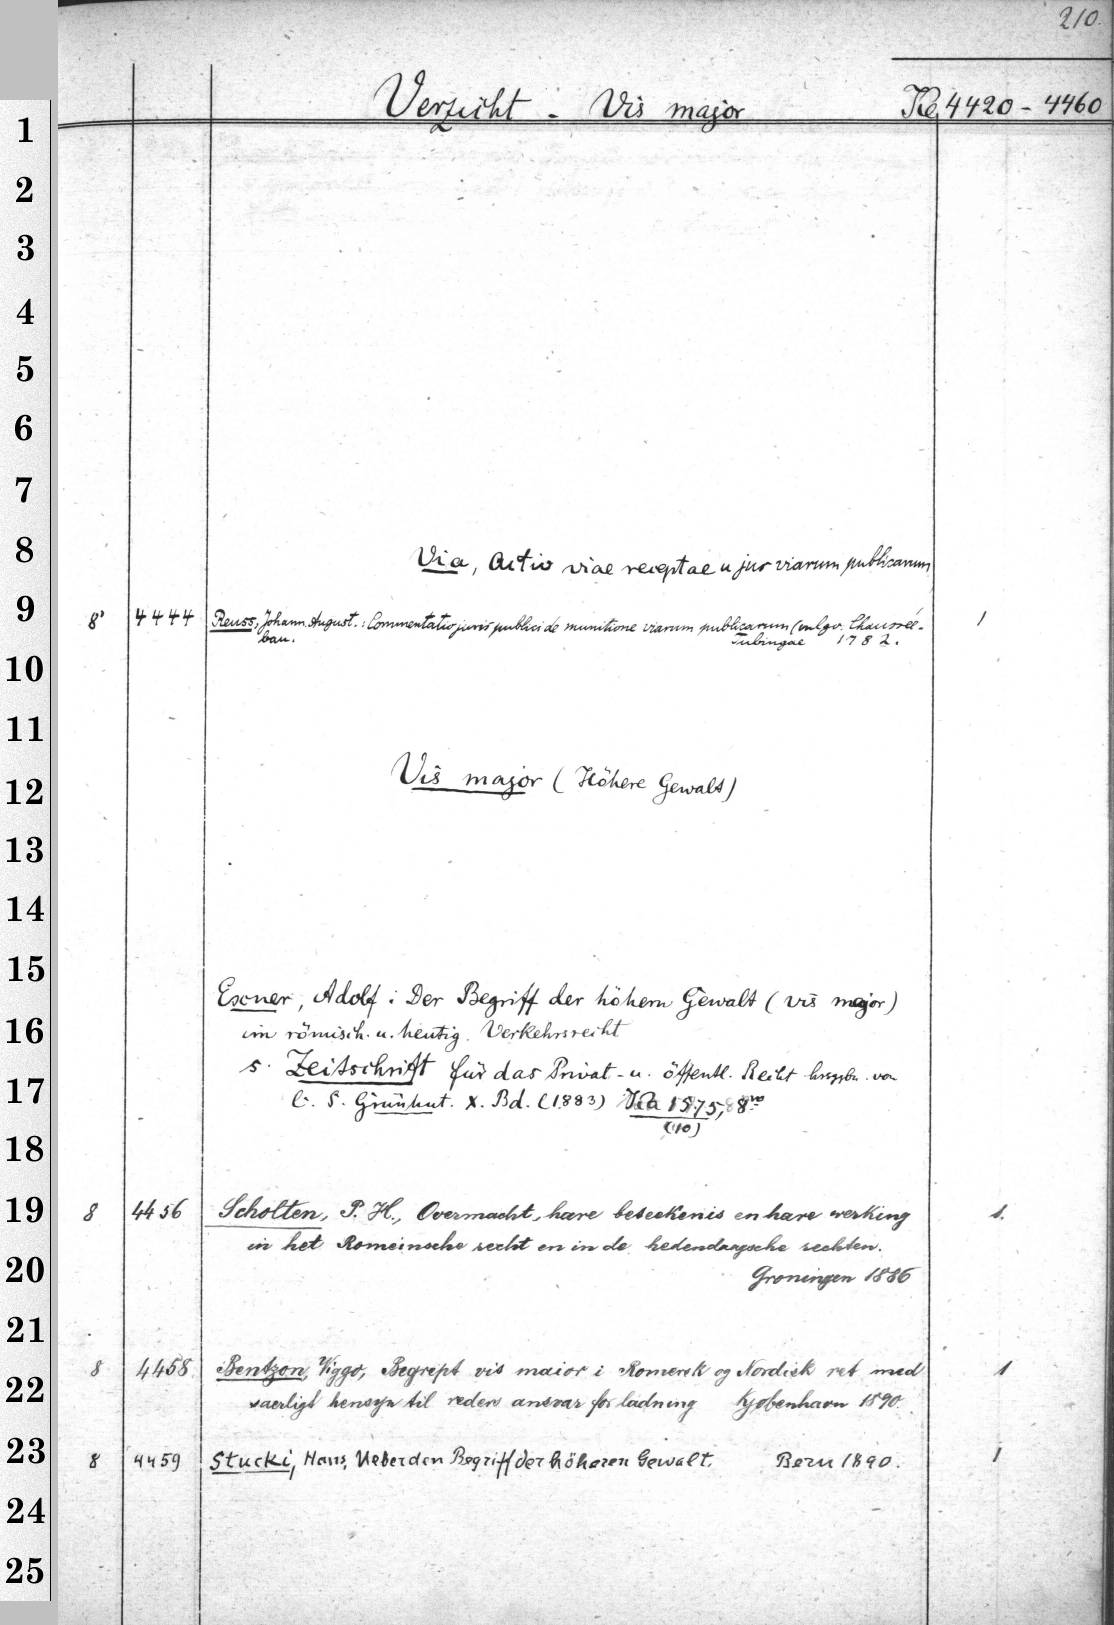 210.
Verzicht - Vis major Ke 4420 - 4460
1
2
3
4
5
6
7
8
Via, Actio viae receptae u jus viarum publicarum
9 8° 4444 Reuss, Johann August. : Commentatio juris publici de munitione viarum publicarum (vulgo. Chaussée-
bau. Tubingae 1782. 1
10
11
12 Vis major (Höhere Gewalt)
13
14
15
Exner, Adolf : Der Begriff der höhern Gewalt ( vis major )
16 im römisch. u. heutig. Verkehrsrecht
s. Zeitschrift für das Privat- u. öffentl. Recht hrsggbn. von
17 C. S. Grünhut. X. Bd. (1883) Ka 1575, 8vo
(10)
18
19 8 4456 Scholten, P. H., Overmacht, hare beteekenis en hare werking 1.
in het Romeinsche recht en in de hedendaagsche rechten.
20 Groningen 1886
21
8 4458 Bentzon, Viggo, Begrept vis maior i Romersk og Nordisk ret med 1
22 saerligt hensyn til reders ansvar for ladning Kjobenhavn 1890.
23 8 4459 Stucki, Hans, Ueber den Begriff der höheren Gewalt. Bern 1890. 1
24
25